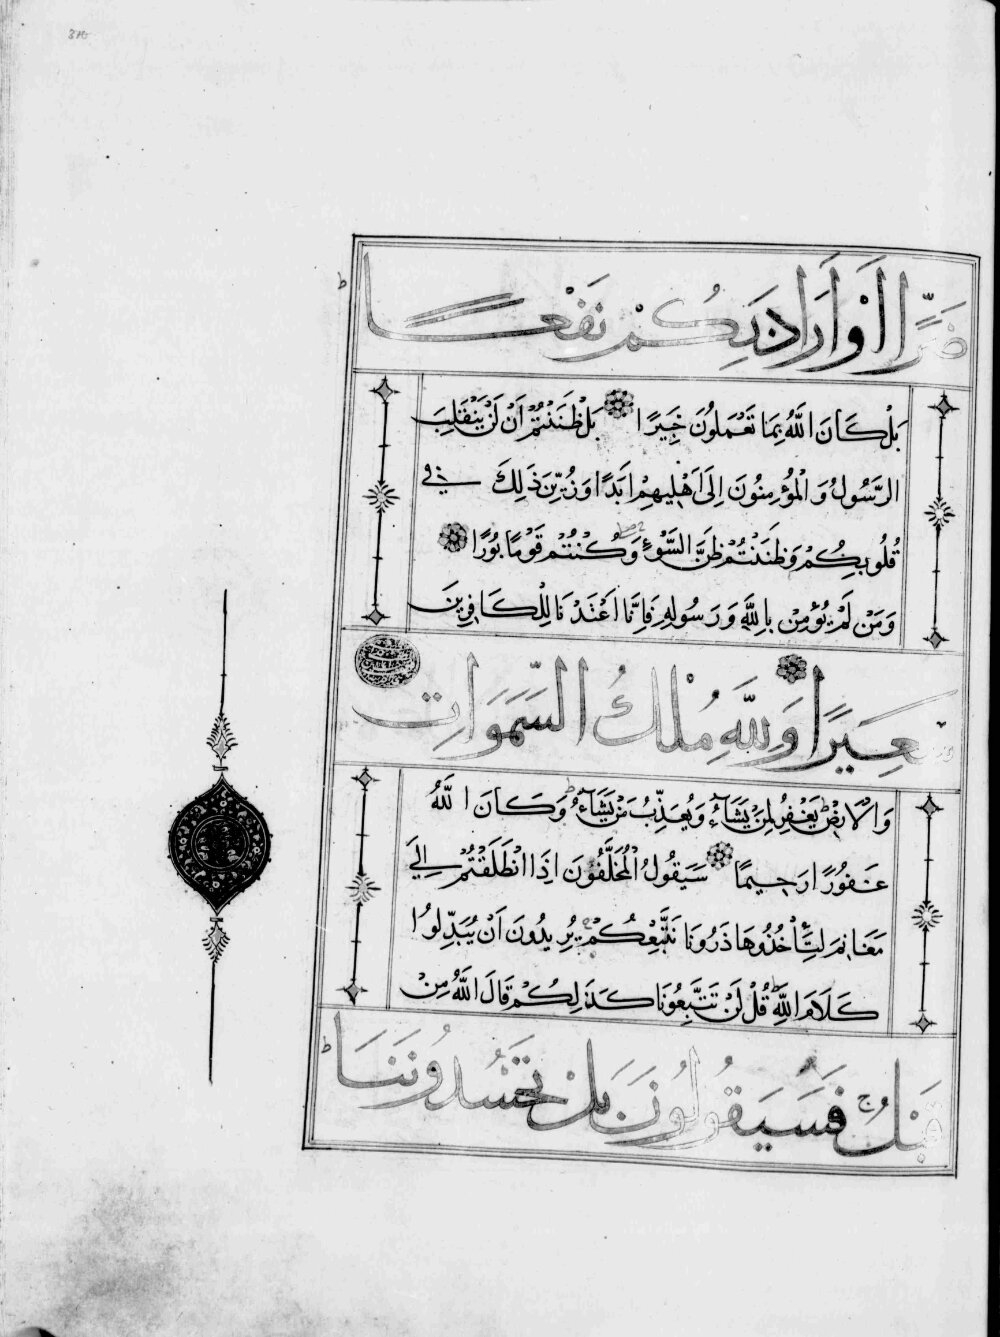 ضَرًّا اَوْ اَرَادَ بِكُمْ نَفْعًا
بَلْ كَانَ اللّٰهُ بِمَا تَعْمَلُونَ خَبِيرًا بَلْ ظَنَنْتُمْ اَنْ لَنْ يَنْقَلِبَ
الرَّسُولُ وَالْمُؤْمِنُونَ اِلَى اَهْلِيهِمْ اَبَدًا وَزُيِّنَ ذَلِكَ فِي
قُلُوبِكُمْ وَظَنَنْتُمْ ظَنَّ السَّوْءِ وَكُنْتُمْ قَوْمًا بُورًا
وَمَنْ لَمْ يُؤْمِنْ بِاللّٰهِ وَرَسُولِهِ فَاِنَّا اَعْتَدْنَا لِلْكَافِرِينَ
سَعِيرًا وَلِلّٰهِ مُلْكُ السَّمَوَاتِ
وَالْاَرْضِ يَغْفِرُ لِمَنْ يَشَآءُ وَيُعَذِّبُ مَنْ يَشَآءُ وَكَانَ اللّٰهُ
غَفُورًا رَحِيمًا سَيَقُولُ الْمُخَلَّفُونَ اِذَا انْطَلَقْتُمْ اِلَى
مَغَانِمَ لِتَأْخُذُوهَا ذَرُونَا نَتَّبِعْكُمْ يُرِيدُونَ اَنْ يُبَدِّلُوا
كَلَامَ اللّٰهِ قُلْ لَنْ تَتَّبِعُونَا كَذَلِكُمْ قَالَ اللّٰهُ مِنْ
قَبْلُ فَسَيَقُولُونَ بَلْ تَحْسُدُونَنَا